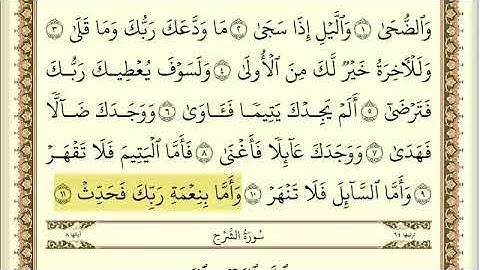 وَٱلضُّحَىٰ ۝١ وَٱلَّيْلِ إِذَا سَجَىٰ ۝٢ مَا وَدَّعَكَ رَبُّكَ وَمَا قَلَىٰ ۝٣
وَلَلْأٓخِرَةُ خَيْرٌ لَّكَ مِنَ ٱلْأُولَىٰ ۝٤ وَلَسَوْفَ يُعْطِيكَ رَبُّكَ
فَتَرْضَىٰٓ ۝٥ أَلَمْ يَجِدْكَ يَتِيمًا فَـَٔاوَىٰ ۝٦ وَوَجَدَكَ ضَآلًّا
فَهَدَىٰ ۝٧ وَوَجَدَكَ عَآئِلًا فَأَغْنَىٰ ۝٨ فَأَمَّا ٱلْيَتِيمَ فَلَا تَقْهَرْ
۝٩ وَأَمَّا ٱلسَّآئِلَ فَلَا تَنْهَرْ ۝١٠ وَأَمَّا بِنِعْمَةِ رَبِّكَ فَحَدِّثْ ۝١١
ترتيبها ٩٤ سُورَةُ الشَّرْحِ آياتها ٨